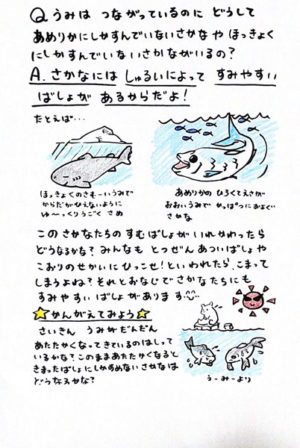 Q. うみは つながっているのに どうして
あめりかにしかすんでいないさかなや ほっきょく
にしかすんでいないさかながいるの？
A. さかなには しゅるいによって すみやすい
ばしょが あるからだよ！
たとえば…
ほっきょくのさむーいうみで
からだがひえないように
ゆ〜っくりうごく さめ
あめりかの ひろくてえさが
おおいうみで かっぱつにおよぐ
さかな
このさかなたちの すむばしょが いれかわったら
どうなるかな？ みんなも とつぜんあついばしょや
こおりのせかいにひっこせ！といわれたら、こまって
しまうよね？ それとおなじで さかなたちにも
すみやすい ばしょが あります
かんがえてみよう
さいきん うみがだんだん
あたたかくなってきているのはしって
いるかな？ このままあたたかくなると
きまったばしょにしかすめないさかなは
どうなるかな？
うーみーより